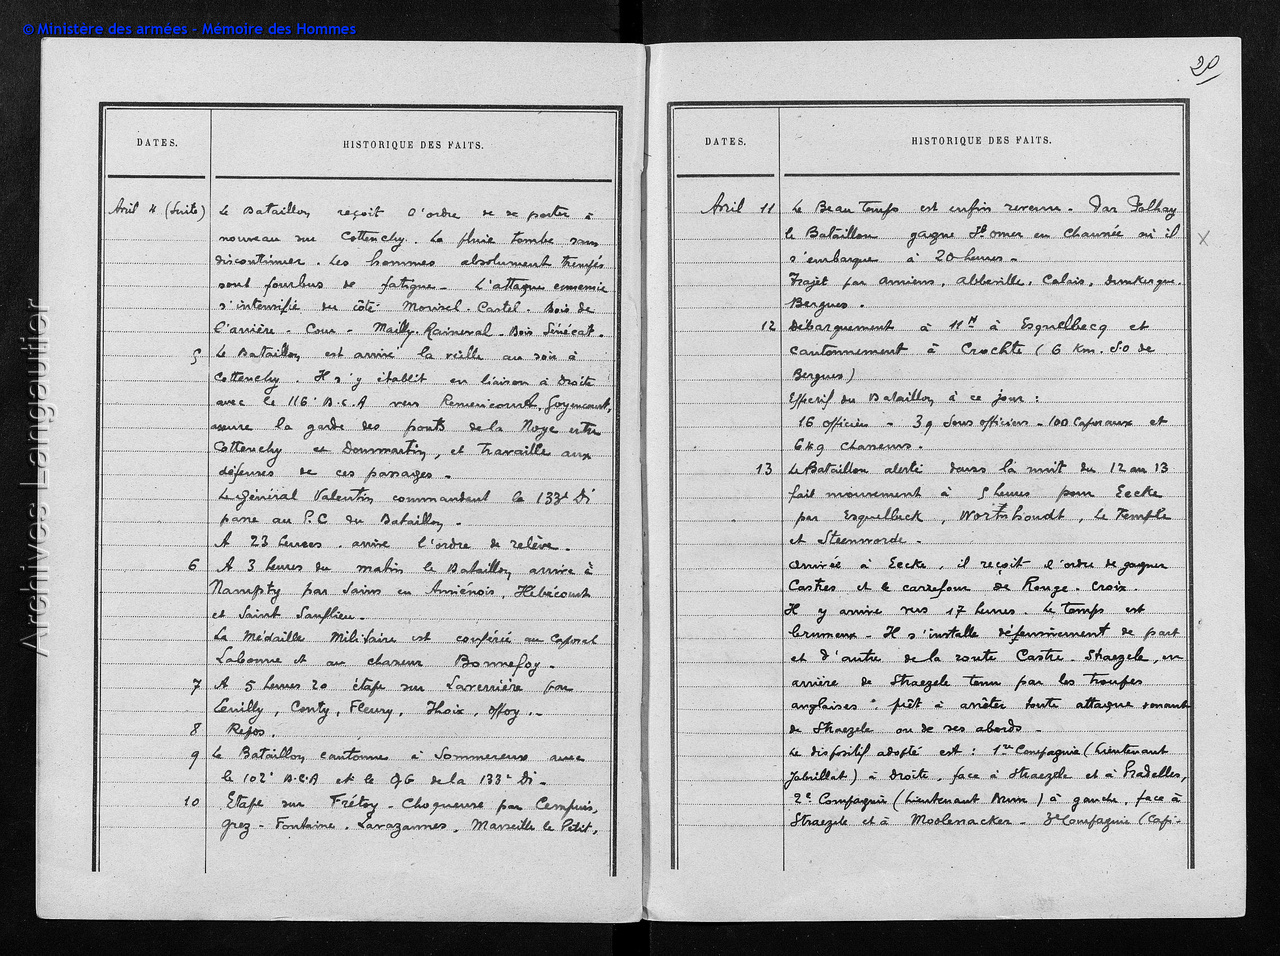 © Ministère des armées - Mémoire des Hommes
Archives Langautier
20
DATES.
HISTORIQUE DES FAITS.
Avril 4 (suite) Le Bataillon reçoit l'ordre de se porter à
nouveau sur Cottenchy. La pluie tombe sans
discontinuer. Les hommes absolument trempés
sont fourbus de fatigue. L'attaque ennemie
s'intensifie du côté Morisel - Castel - Bois de
l'arrière - Cour - Mailly-Raineval - Bois Sénécat.
5 Le Bataillon est arrivé la veille au soir à
Cottenchy. Il s'y établit en liaison à droite
avec le 116e B.C.A vers Remiencourt, Guyencourt,
assure la garde des ponts de la Noye entre
Cottenchy et Dommartin, et travaille aux
défenses de ces passages.
Le Général Valentin commandant la 133e Di
passe au P.C du Bataillon.
A 23 heures arrive l'ordre de relève.
6 A 3 heures du matin le Bataillon arrive à
Nampty par Sains en Amiénois, Hébécourt
et Saint Sauflieu.
La Médaille Militaire est conférée au Caporal
Labonne et au chasseur Bonnefoy.
7 A 5 heures 20 étape sur Laverrière par
Leuilly, Conty, Fleury, Thoix, Offoy.
8 Repos.
9 Le Bataillon cantonne à Sommereux avec
le 102e B.C.A et le QG de la 133e Di.
10 Etape sur Frétoy - Choqueuse par Cempuis,
Grez - Fontaine Lavaganne, Marseille le Petit,
DATES.
HISTORIQUE DES FAITS.
Avril 11 Le Beau temps est enfin revenu. Par
le Bataillon gagne St Omer en Chaussée où il
s'embarque à 20 heures.
Trajet par Amiens, Abbeville, Calais, Dunkerque,
Bergues.
12 Débarquement à 11H à Esquelbecq et
cantonnement à Crochte (6 Km. SO de
Bergues)
Effectif du Bataillon à ce jour :
16 officiers - 39 Sous officiers - 100 Caporaux et
649 chasseurs.
13 Le Bataillon alerté dans la nuit du 12 au 13
fait mouvement à 5 heures pour Eecke
par Esquelbeck, Wormhoudt, Le Temple
et Steenworde.
Arrivée à Eecke, il reçoit l'ordre de gagner
Castres et le carrefour de Rouge-Croix.
Il y arrive vers 17 heures. Le temps est
brumeux. Il s'installe défensivement de part
et d'autre de la route Castre - Straezele, en
arrière de Straezele tenu par les troupes
anglaises, prêt à arrêter toute attaque venant
de Straezele ou de ses abords.
Le dispositif adopté est : 1re Compagnie (Lieutenant
Jabrillat) à droite, face à Straezele et à Pradelles,
2e Compagnie (Lieutenant Brun) à gauche, face à
Straezele et à Moolenacker - 3e Compagnie (Capi-